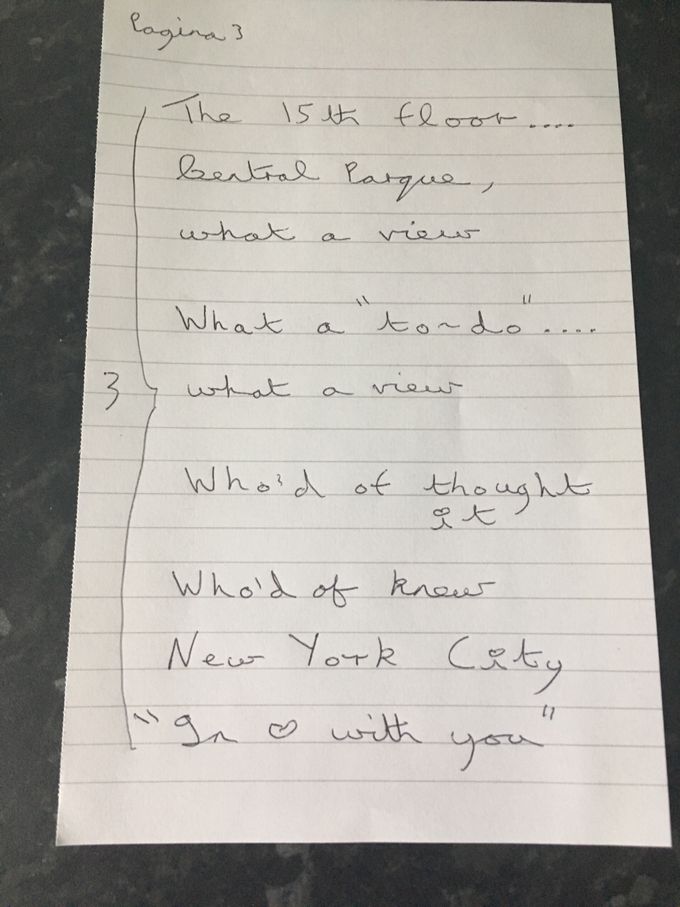 Pagina 3
The 15th floor....
Central Parque,
what a view
What a "to-do"....
3 what a view
Who'd of thought
it
Who'd of knew
New York City
"In ♡ with you"